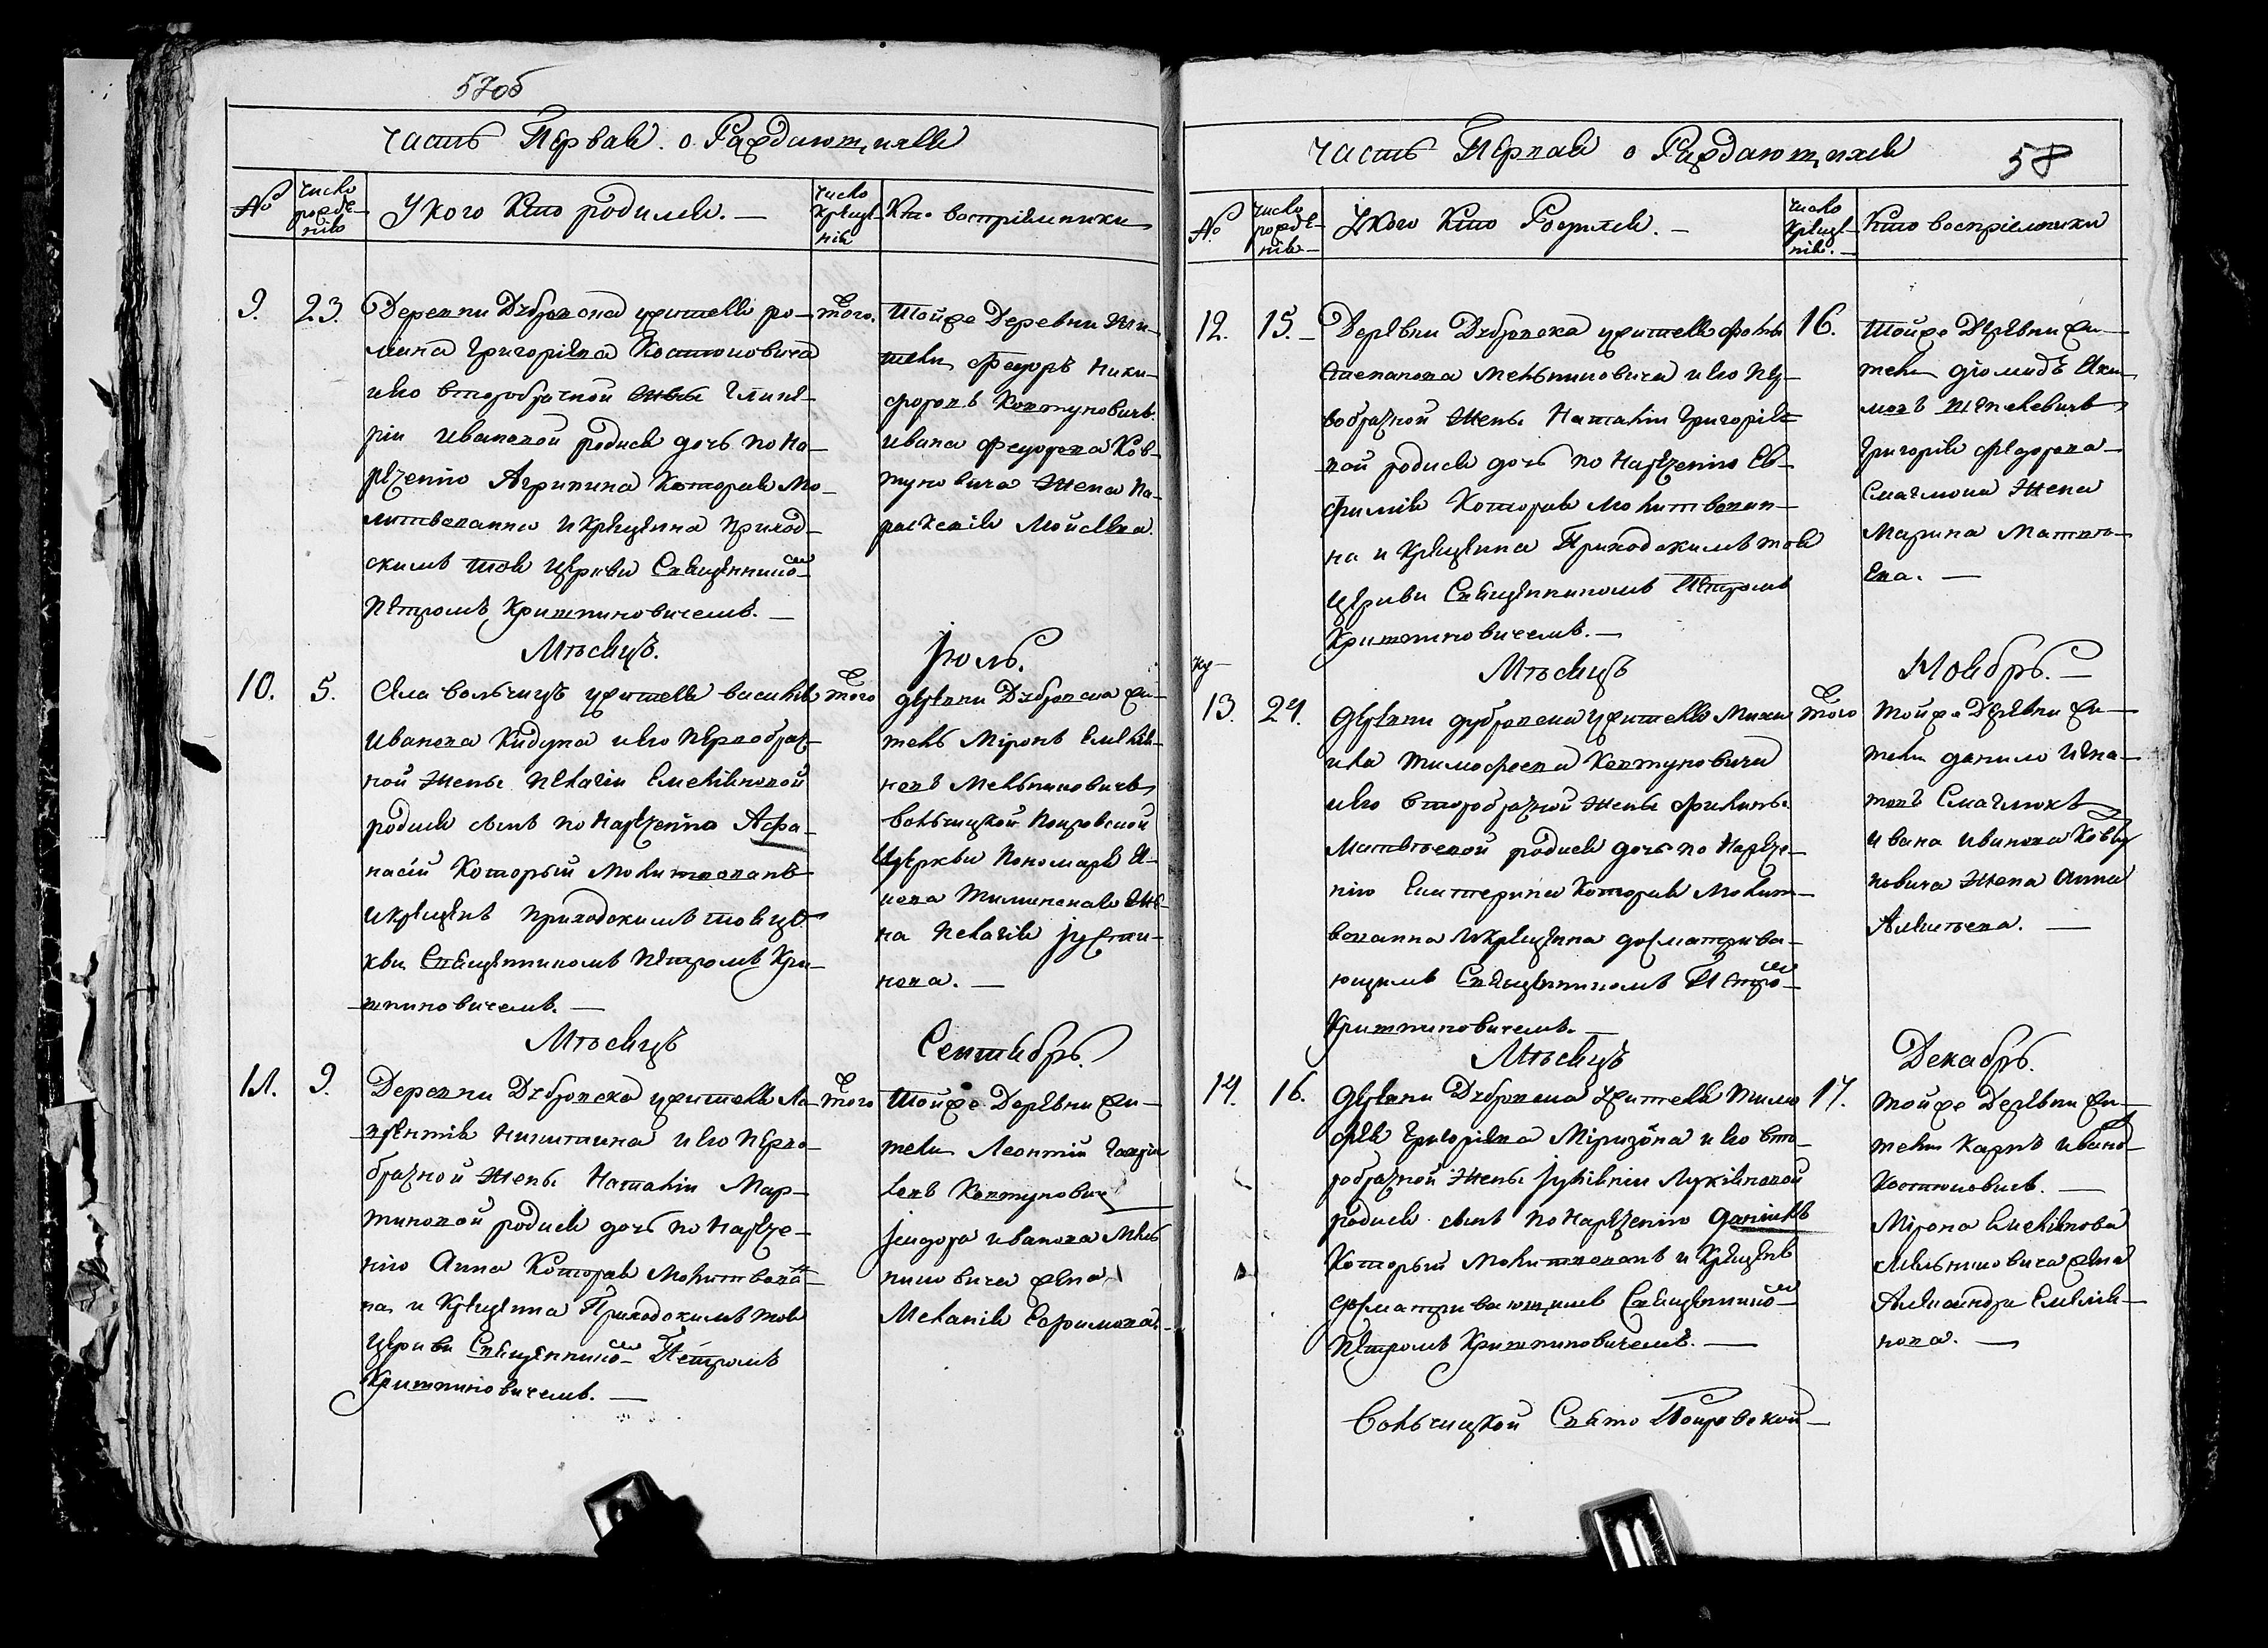 57об
Часть Первая. о Раждающихся
№
число рожде-
нію
У кого кто родился. —
число
крещѣ-
нія
Кто восприемники
9.
23.
Деревни Дубровска жителя ро-
мана Григоріева Костюковича
и его второбрачной жены Глике-
ріи Ивановой родися дочь по на-
рѣченію Агрипина которая мо-
литвованна и крещена приход-
скимъ тоя церкви Священникомъ
Петромъ Критпиновичемъ. —
того.
Тойже Деревни жи-
тели Феодоръ Ники-
форовъ Ковтуновичъ
Ивана Феодорова Ков-
туновича жена Па-
раскевія Мойсеева.
Мѣсяцъ.
Іюль.
10.
5.
Села Вольчицъ жителя Василія
Иванова Кидуна и его первобрач-
ной жены Пелагіи Емельяновой
родися сынъ по нарѣченію Афа-
насій который молитвованъ
и крещенъ приходскимъ тоя цер-
кви Священникомъ Петромъ Кри-
тпиновичемъ. —
того
деревни Дубровска жи-
тель Міронъ Емелія-
новъ Мельниковичъ
Вольчицкой Покровской
Церкви Пономаря
жена Пелагія Іусти-
нова. —
Мѣсяцъ
Сентябрь.
11.
9.
Деревни Дубровска жителя Ла-
врентія Никитина и его перво-
брачной жены Наталіи Мар-
тиновой родися дочь по нарѣче-
нію Анна которая молитвован-
на и крещена Приходскимъ тоя
Церкви Священникомъ Петромъ
Критпиновичемъ. —
того
Тойже Деревни жи-
тели Леонтій Гаври-
ловъ Ковтунович
Ісидора Иванова Мель
никовича жена
Меланія Ефимова.
Часть Первая о Раждающихся
58
№
число
рожде-
нія
У кого кто Родился. —
число
крещѣ-
нія. —
Кто восприемники
12.
15. —
Деревни Дубровска жителя Фомы
Степанова Мельниковича и его пер-
вобрачной жены Наталіи Григоріе-
вой родися дочь по нарѣченію Ев-
фимія которая молитвован-
на и крещена Приходскимъ тоя
Церкви Священникомъ Петромъ
Критпиновичемъ. —
16.
Тойже Деревни жи-
тели Діомидъ Яки-
мовъ
Григорія Федорова
Смаглюка жена
Марина Матвѣ-
ева. —
Мѣсяцъ
Ноябрь. —
13.
24.
Деревни Дубровска жителя Миха
ила Тимофеева Ковтуновича
и его второбрачной жены Филипы
Матвѣевой родися дочь по нарѣче-
нію Екатерина которая молит-
вованна и крещена досматрива-
ющимъ Священникомъ Петромъ
Критпиновичемъ. —
того
Тойже Деревни жи-
тели Данило Игна-
товъ Смаглюкъ
Ивана Иванова Ковту
новича жена Анна
Алексѣева. —
Мѣсяцъ
Декабрь.
14.
16.
Деревни Дубровска жителя Тимо
фея Григоріева Міризона и его вто-
робрачной жены Іуліаніи Лукіяновой
родися сынъ по нарѣченію Даніилъ
который молитвованъ и крещенъ
досматривающимъ Священникомъ
Петромъ Критпиновичемъ. —
17.
Тойже Деревни жи-
тели Карпъ Ивано-
Костюковичъ. —
Мірона Емеліянова
Мельниковича жена
Александра Емелія-
нова. —
Вольчицкой Свято Покровской —